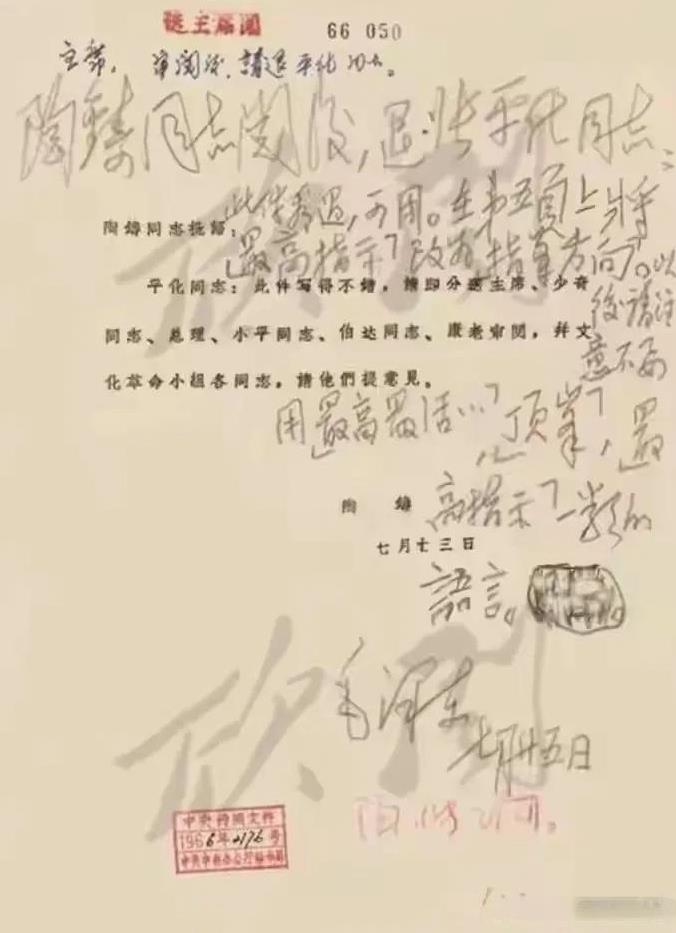 送主席閱
66 050
主席，审阅后，請退平化
陶鑄同志阅后，退张平化同志：
此件看过，可用。在第五頁上将
「最高指示」改为「指導方向」。以
後請注
意不要
用「最高最活…」「顶峯」，「最
高指示」一类的
語言。
毛泽东
七月廿五日
陶鑄同志批語：
平化同志：此件写得不錯，請即分送主席、少奇
同志、总理、小平同志、伯达同志、康老审閱，幷文
化革命小組各同志，請他們提意見。
陶 鑄
七月十三日
中央传閱文件
1966年2176号
中共中央办公厅秘书局